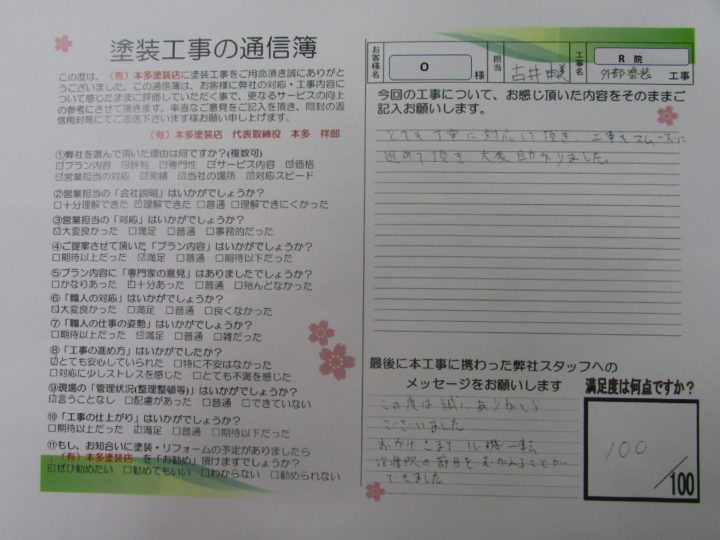 塗装工事の通信簿
この度は、(有)本多塗装店に塗装工事をご用命頂き誠にありがと
うございました。この通信簿は、お客様に弊社の対応・工事内容に
ついて感じたままに評価していただく事で、更なるサービスの向上
の参考にさせて頂きます。率直なご意見をご記入を頂き、同封の返
信用封筒にてご返送下さいます様お願い申し上げます。
(有)本多塗装店 代表取締役 本多 祥郎
①弊社を選んで頂いた理由は何ですか?(複数可)
☑プラン内容 ☑評判 ☑専門性 ☑サービス内容 ☑価格
☑営業担当の対応 ☑実績 ☑当社の場所 ☑対応スピード
②営業担当の「会社説明」はいかがでしょうか?
□十分理解できた ☑理解できた □普通 □理解できにくかった
③営業担当の「対応」はいかがでしょうか?
☑大変良かった □満足 □普通 □事務的だった
④ご提案させて頂いた「プラン内容」はいかがでしょうか?
□期待以上だった ☑満足 □普通 □期待以下だった
⑤プラン内容に「専門家の意見」はありましたでしょうか?
□かなりあった ☑十分あった □普通 □殆んどなかった
⑥「職人の対応」はいかがでしょうか?
☑大変良かった □満足 □普通 □良くなかった
⑦「職人の仕事の姿勢」はいかがでしょうか?
□期待以上だった ☑満足 □普通 □雑だった
⑧「工事の進め方」はいかがでしたか?
☑とても安心していられた □特に不安はなかった
□対応に少しストレスを感じた □とても不満を感じた
⑨現場の「管理状況(整理整頓等)」はいかがでしょうか?
☑言うことなし □配慮があった □普通 □できていない
⑩「工事の仕上がり」はいかがでしょうか?
□期待以上だった ☑満足 □普通 □期待以下だった
⑪もし、お知合いに塗装・リフォームの予定がありましたら
(有)本多塗装店 を「お勧め」頂けますでしょうか?
☑ぜひ勧めたい □勧めてもいい □わからない □勧められない
お客様名 O 様 担当 古井 工事名 R 院 外部塗装 工事
今回の工事について、お感じ頂いた内容をそのままご
記入お願いします。
とても丁寧に対応して頂き、工事もスムーズに
進めて頂き 大変助かりました。
最後に本工事に携わった弊社スタッフへの
メッセージをお願いします
この度は誠にありがとう
ございました
おかげさまで 心機一転
治療院の節目をむかえることが
できました
満足度は何点ですか?
100
/100